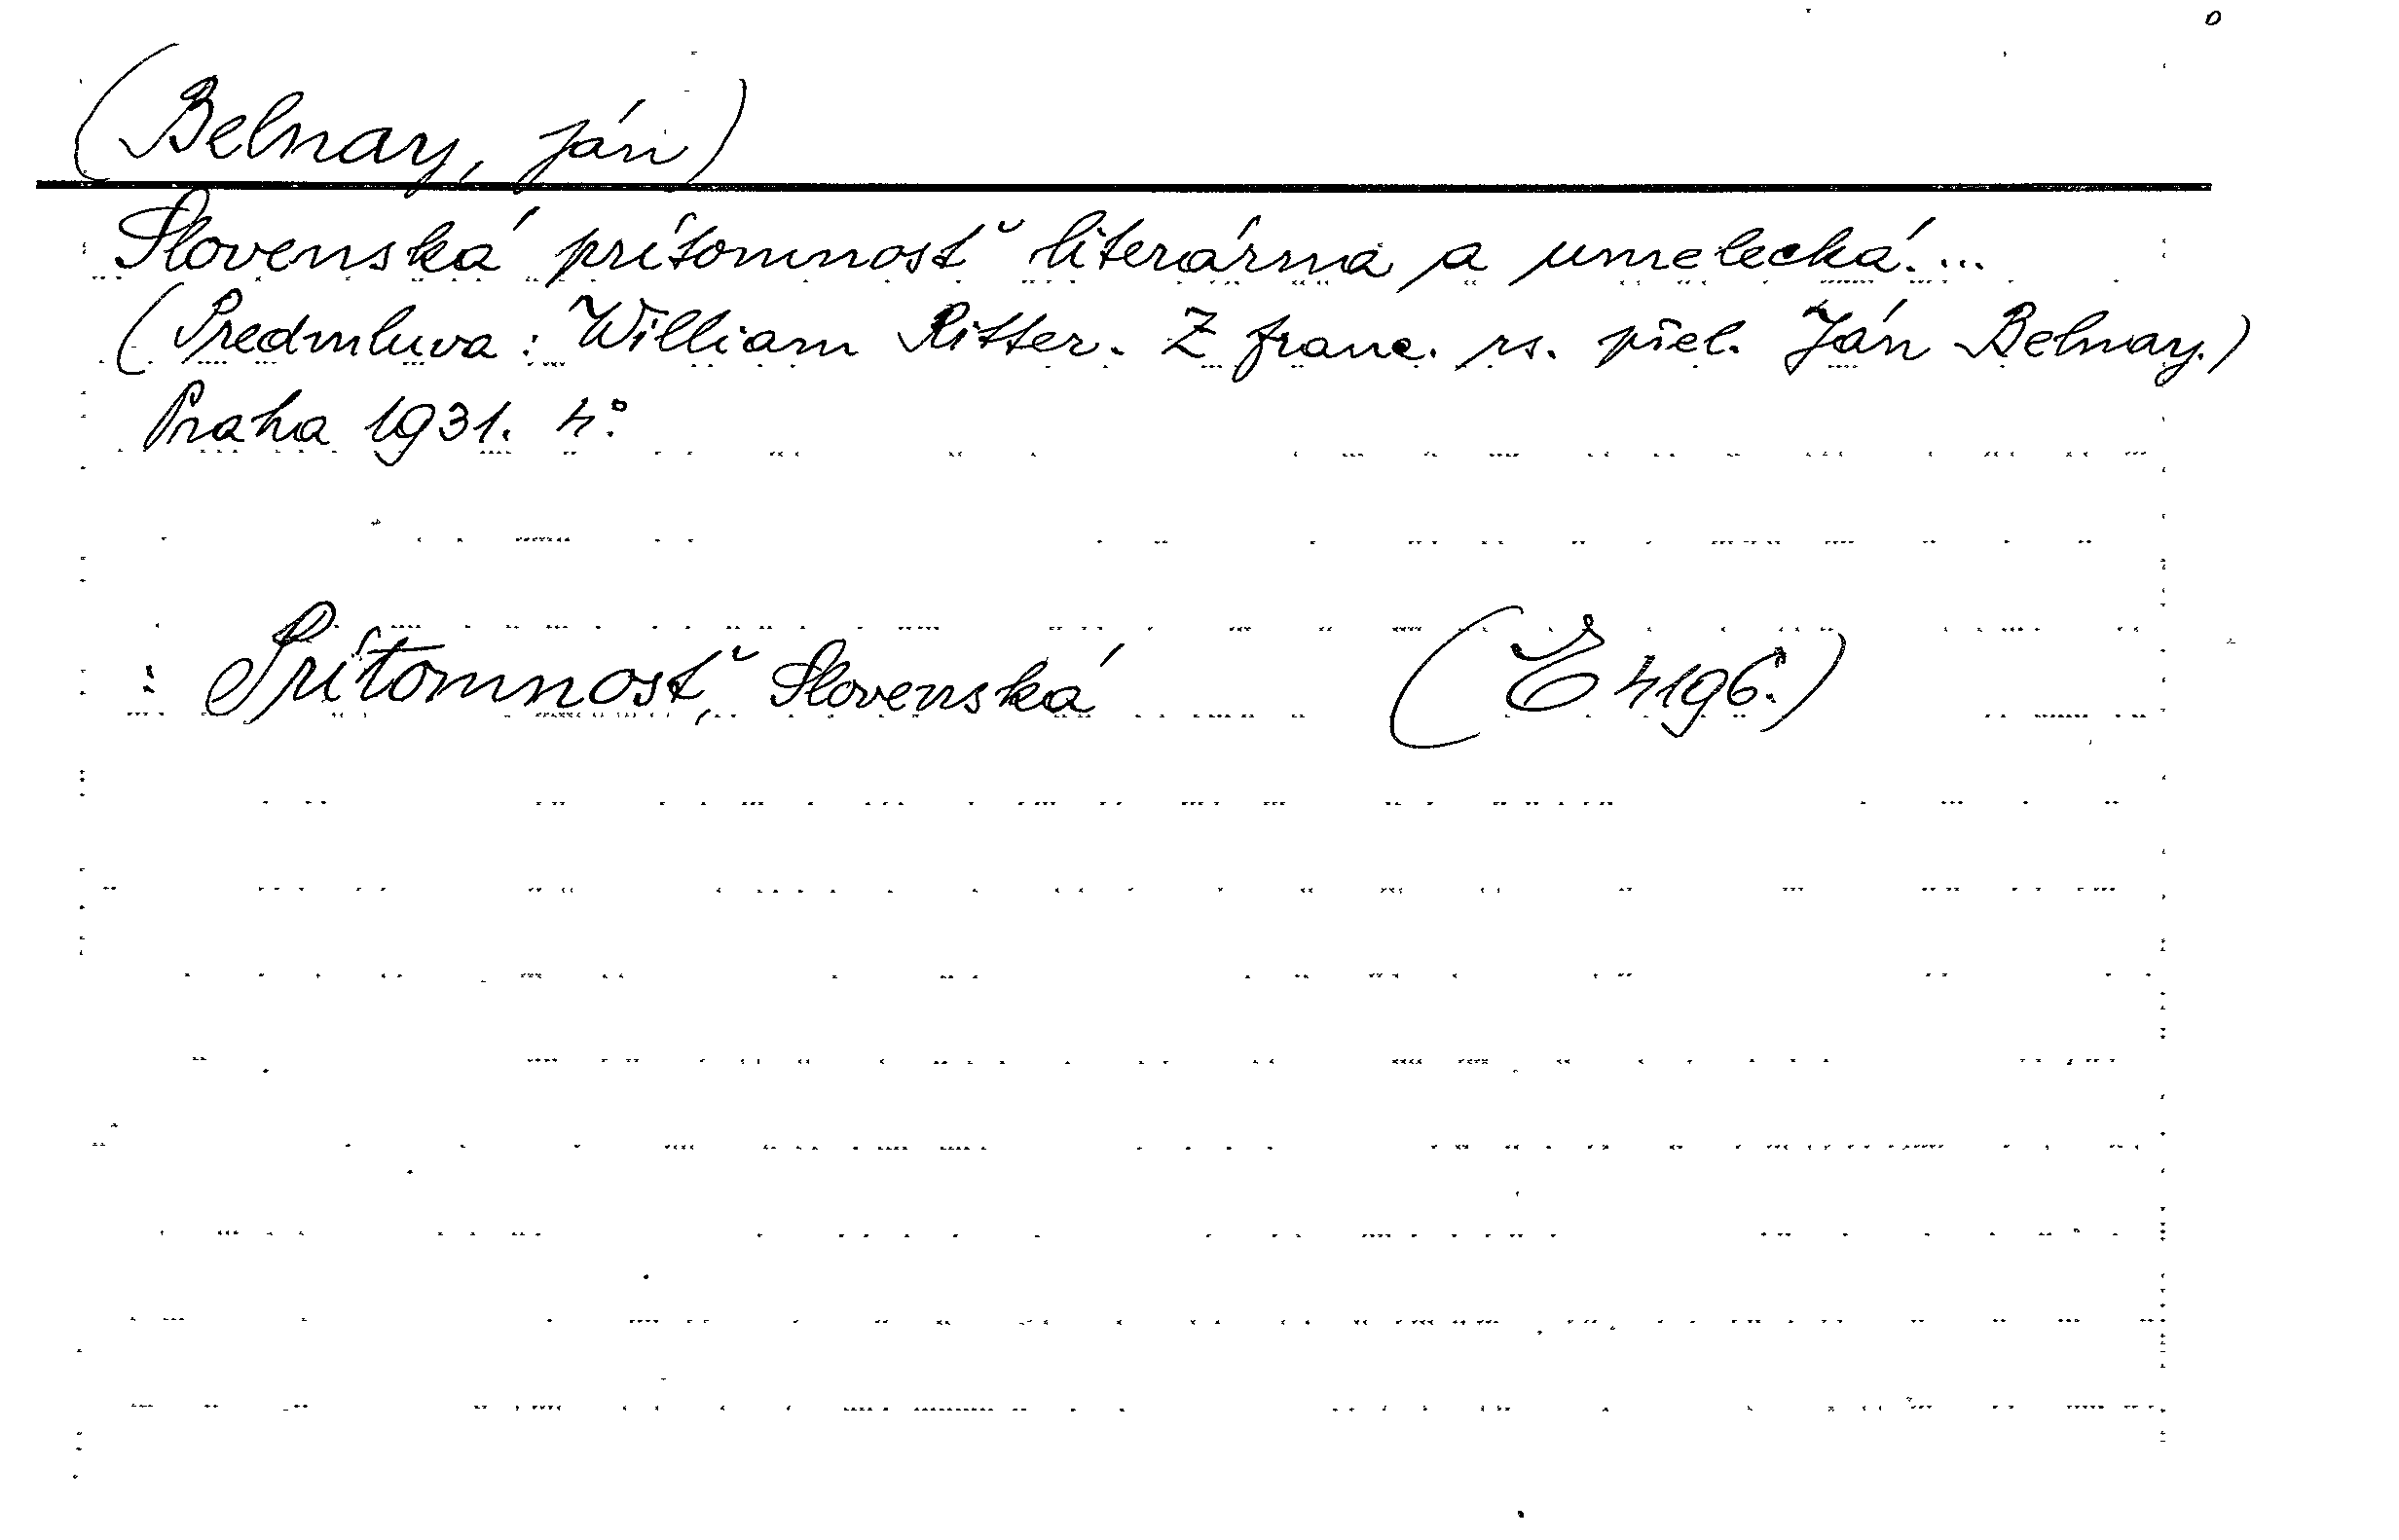 (Belnay, Ján)
Slovenská prítomnosť literárna a umelecká....
(Predmluva: William Ritter. Z franc. rs. přel. Ján Belnay.)
Praha 1931. 4°.
: Prítomnosť, Slovenská (E 4196.)